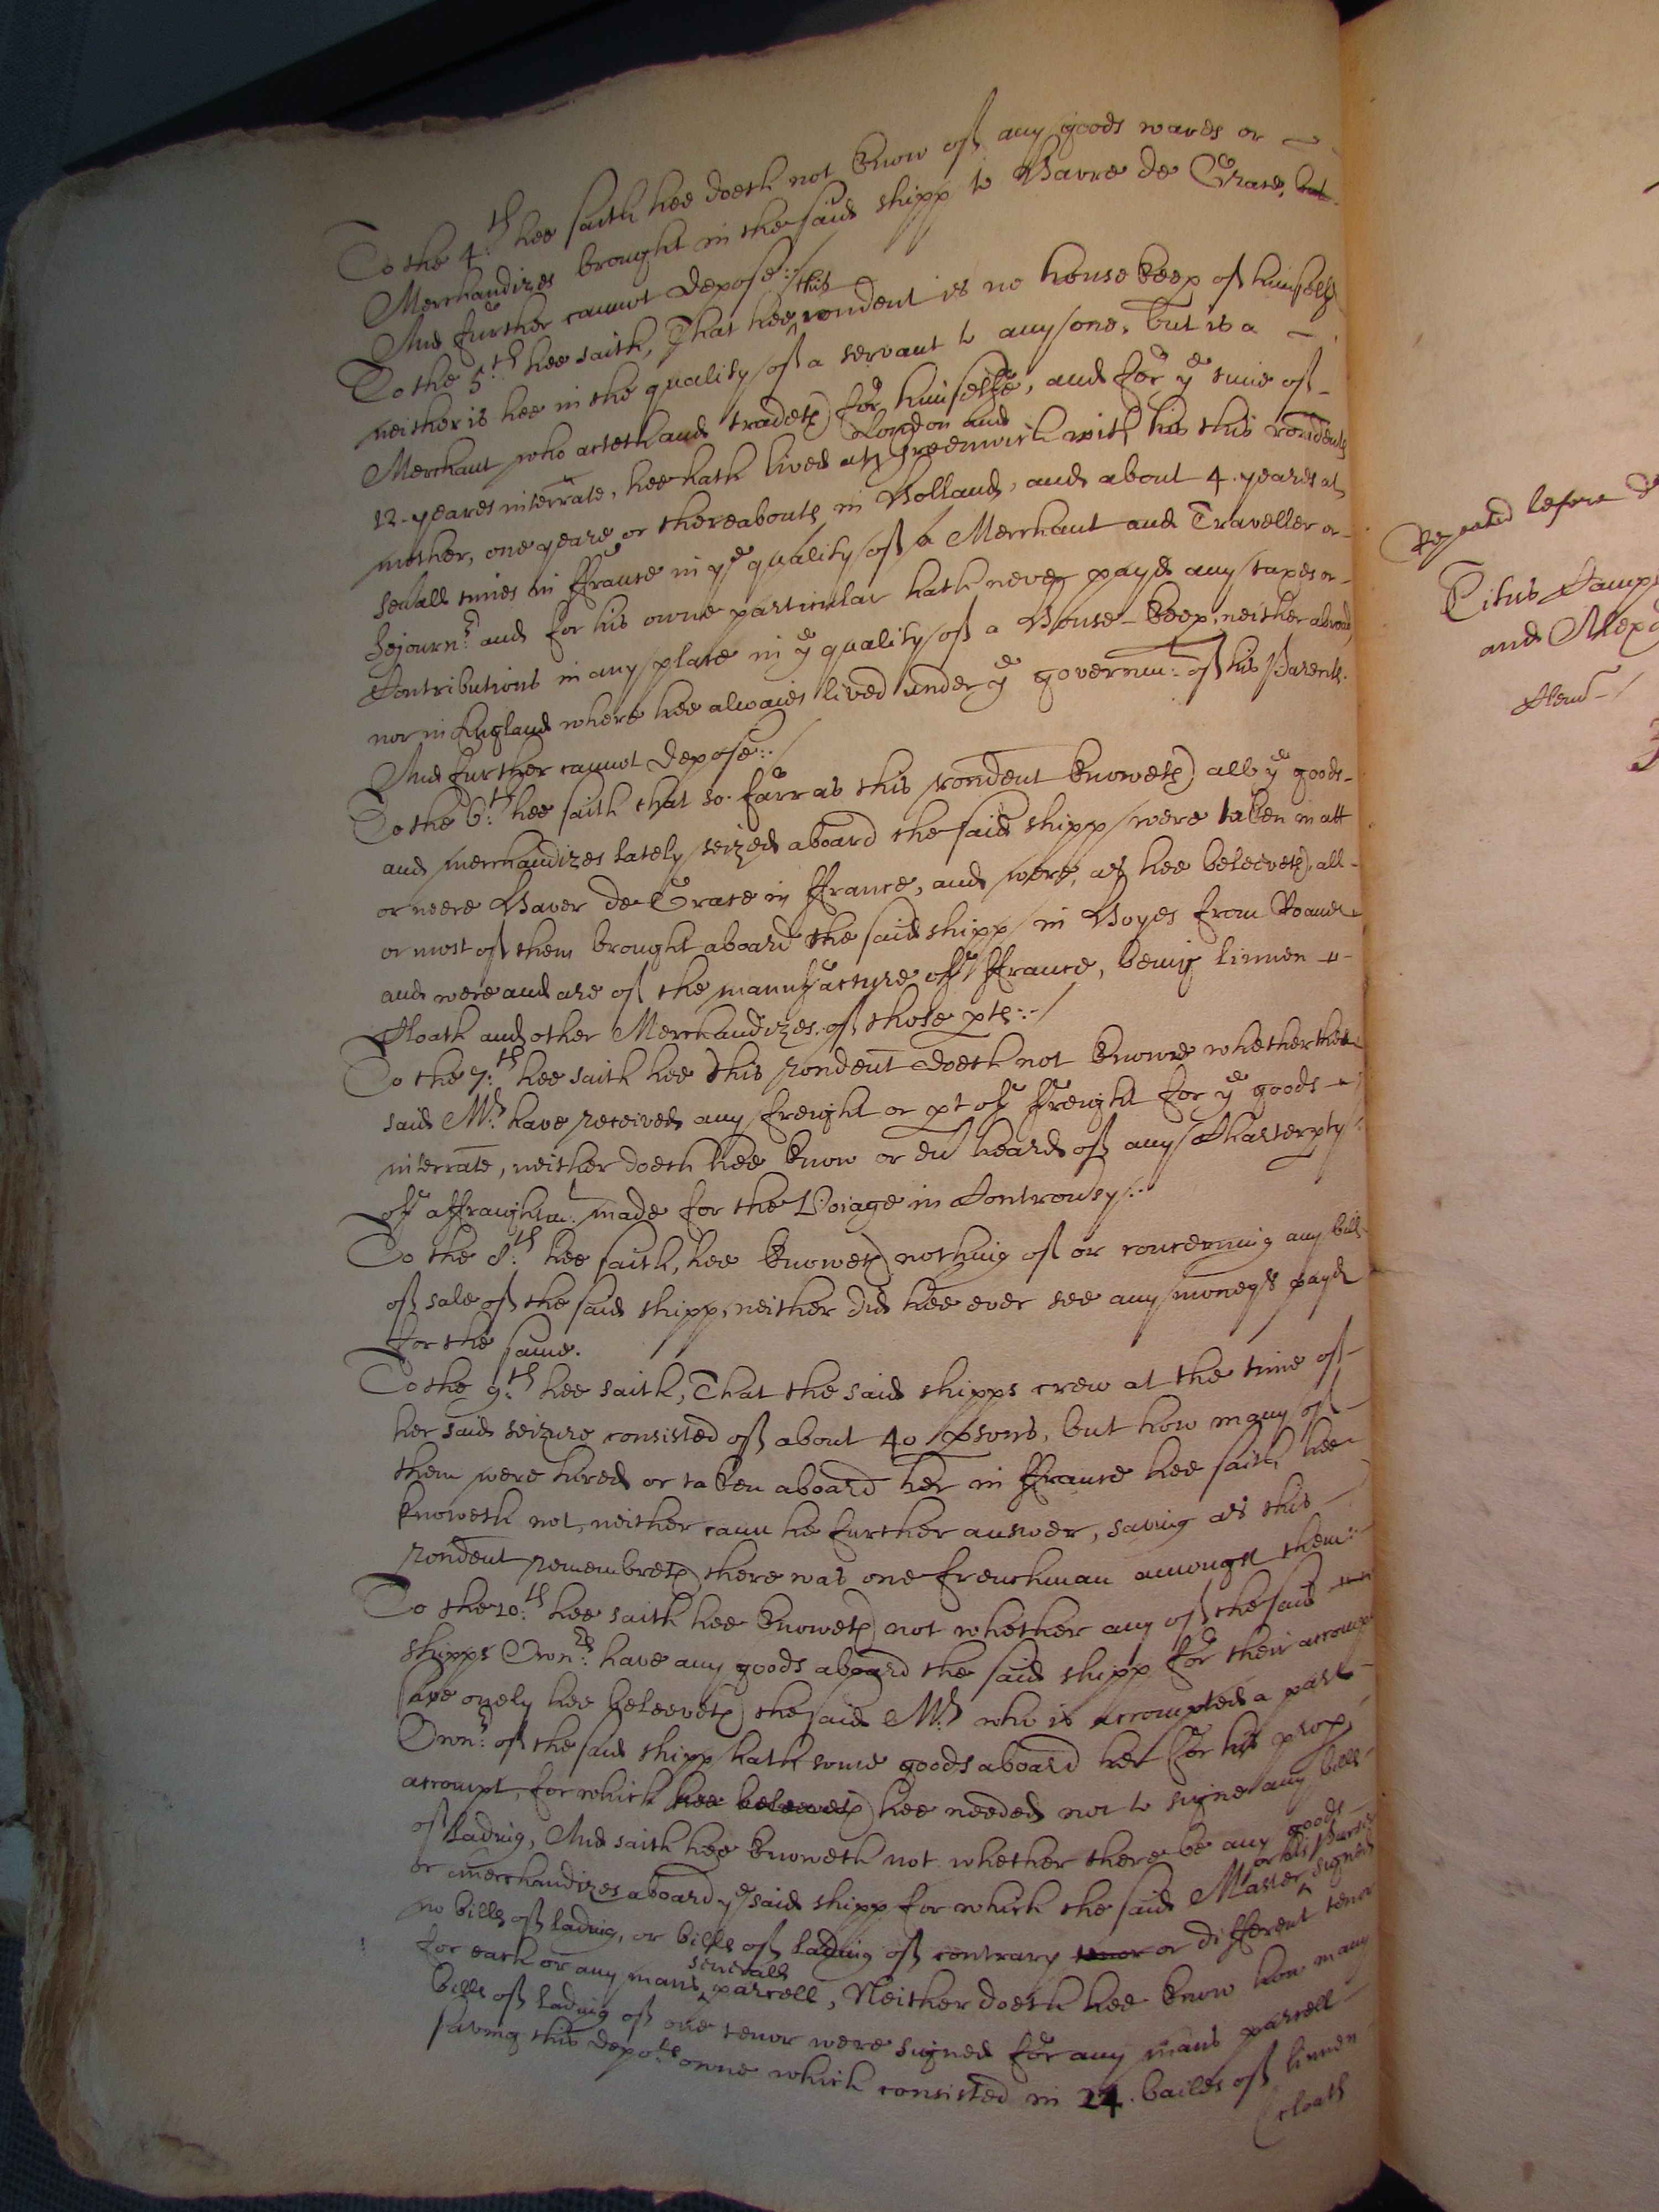 To the 4:th hee saith hee doeth not know of any goods wares or
Merchandizes brought in the said shipp to Havre de Grace, but
And further cannot depose:/
To the 5:th hee saith, That hee this rondent is no housekeep of himselfe
neither is hee in the quality of a servant to any one, but is a
Merchant who acteth and tradeth for himselfe, and for ye time of
12 yeares interrate, hee hath lived at London and Greenwich with his this rondents
mother, one yeare or thereabouts in Holland, and about 4. yeares at
seuall times in ffrance in ye quality of a Merchant and Traveller or
Sojournr: and for his owne particular hath never payd any taxes or
Contributions in any place in ye quality of a House-keep, neither abroad,
nor in England where hee alwaies lived under ye governmt: of his Parents.
And further cannot depose:/
To the 6:th hee saith that so farr as this rondent knoweth all ye goods
and merchandizes lately seized aboard the said shipp were taken in att
or neere Haver de Grace in ffrance, and were, as hee beleeveth, all
or most of them brought aboard the said shipp in Hoyes from Roane
and were and are of the manufacture of ffrance, being linnen
Cloath and other Merchandizes of those pts:/
To the 7:th hee saith hee this rondent doeth not knowe whether the
said Mr: have received any freight or pt of ffreight for ye goods
interrate, neither doeth hee know or eu heard of any Charterpty
of affraightmt: made for the Voiage in Controusy:
To the 8:th hee saith, hee knoweth nothing of or concerning any bill
of sale of the said shipp, neither did hee ever see any moneys payd
for the same.
To the 9:th hee saith, That the said shipps crew at the time of
her said seizure consisted of about 40 psons, but how many of
them were hired or taken aboard her in ffrance hee saith hee
knoweth not, neither cann he further answer, saving as this
rondent remembreth there was one frenchman amongst them:
To the 10:th hee saith hee knoweth not whether any of the said
shipps Ownrs: have any goods aboard the said shipp for their accompt
save onely hee beleeveth the said Mr: who is accompted a part
Ownr: of the said shipp hath some goods aboard her for his prop
accompt, for which hee beleeveth hee needed not to signe any bills
of lading, And saith hee knoweth not whether there be any goods
or merchandizes aboard ye said shipp for which the said Master or his Purser signed
no bills of lading, or bills of lading of contrary tenor or different tenor
for each or any mans severall parcell, Neither doeth hee know how many
bills of lading of one tenor were signed for any mans parcell
saving this depots: owne which consisted in 24. bailes of linnen
cloath
Repeated before
Titus
and Alex